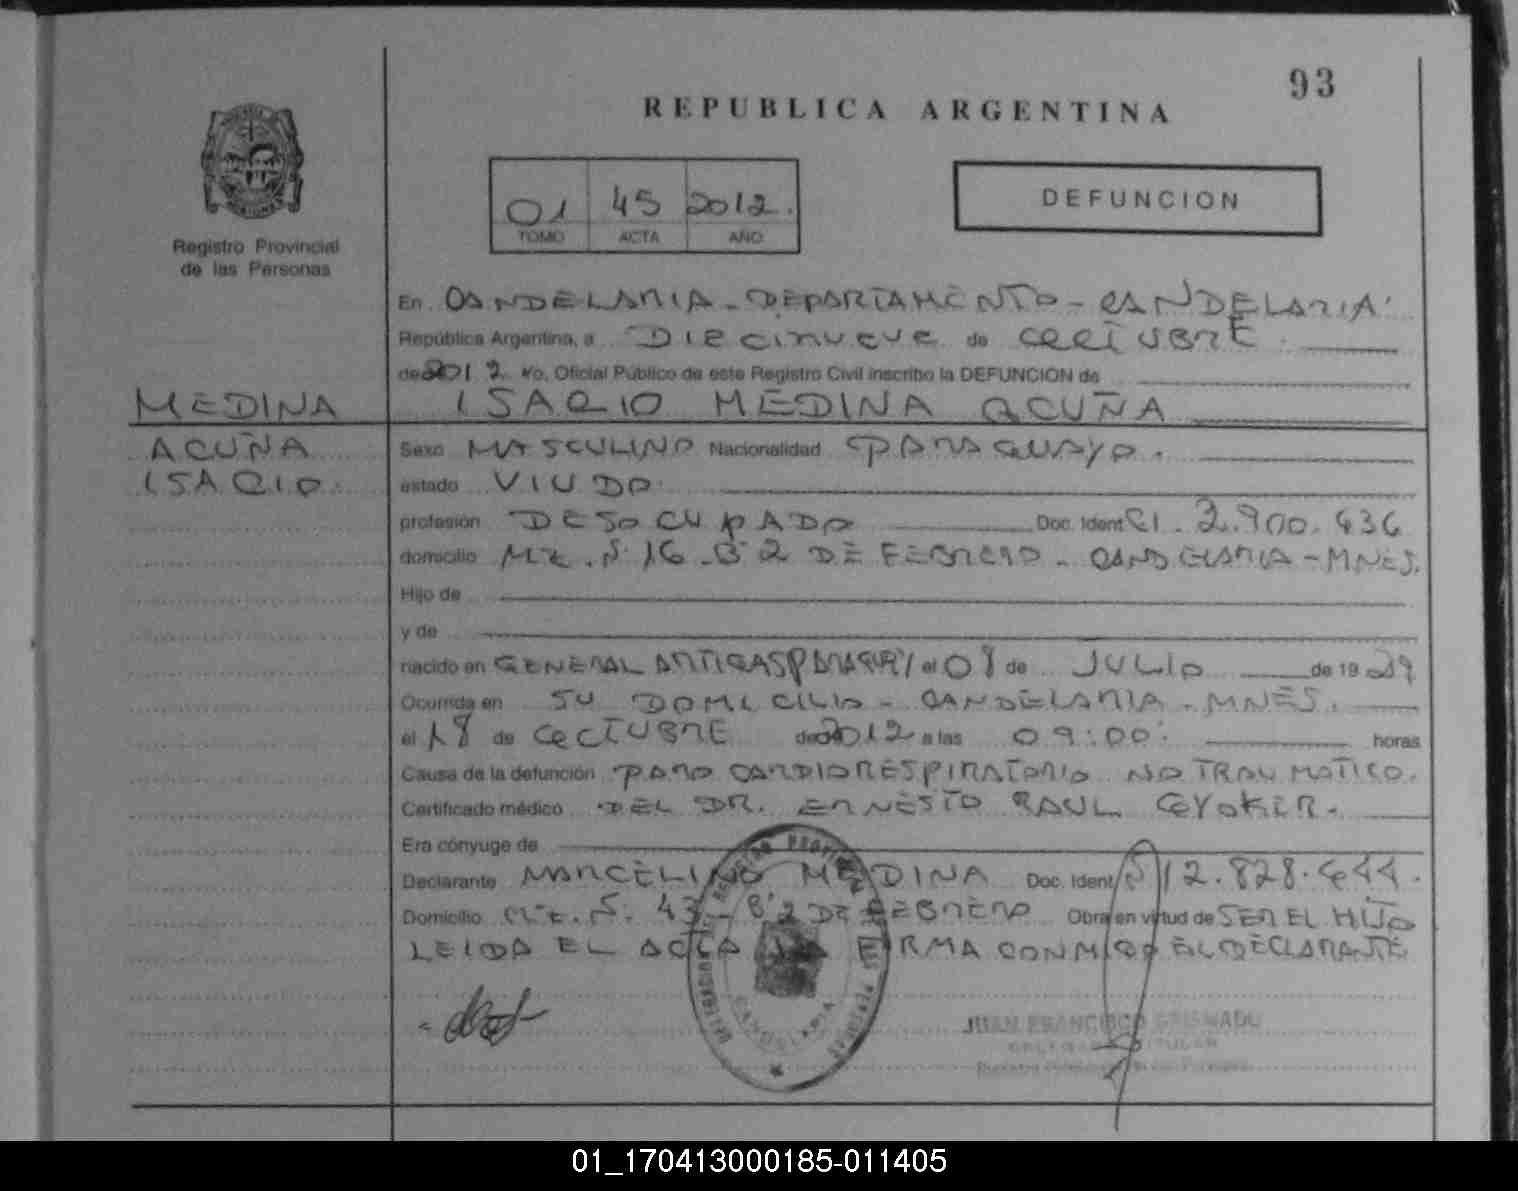 93
REPUBLICA ARGENTINA
Registro Provincial
de las Personas
01 45 2012.
TOMO ACTA AÑO
DEFUNCION
En CANDELARIA - DEPARTAMENTO - CANDELARIA
República Argentina, a DIECINUEVE de OCTUBRE
de 2012 Yo, Oficial Público de este Registro Civil inscribo la DEFUNCION de
MEDINA
ACUÑA
ISACIO
ISACIO MEDINA ACUÑA
Sexo MASCULINO Nacionalidad PARAGUAYO.
estado VIUDO
profesión DESOCUPADO Doc. Ident CI. 2.900.436
domicilio MZ. Nº 16 - Bº 2 DE FEBRERO - CANDELARIA - MNES.
Hijo de
y de
nacido en GENERAL ARTIGAS PARAGUAY el 08 de JULIO de 19
Ocurrida en SU DOMICILIO - CANDELARIA - MNES.
el 18 de OCTUBRE de 2012 a las 09:00 horas
Causa de la defunción PARO CARDIORESPIRATORIO NO TRAUMATICO.
Certificado médico DEL DR. ERNESTO RAUL
Era cónyuge de
Declarante MARCELINO MEDINA Doc. Ident 12.828.444.
Domicilio MZ. Nº 43 - Bº 2 DE FEBRERO Obra en virtud de SER EL HIJO
LEIDA EL ACTA LA FIRMA CONMIGO EL DECLARANTE
CANDELARIA
JUAN FRANCISCO
01_170413000185-011405